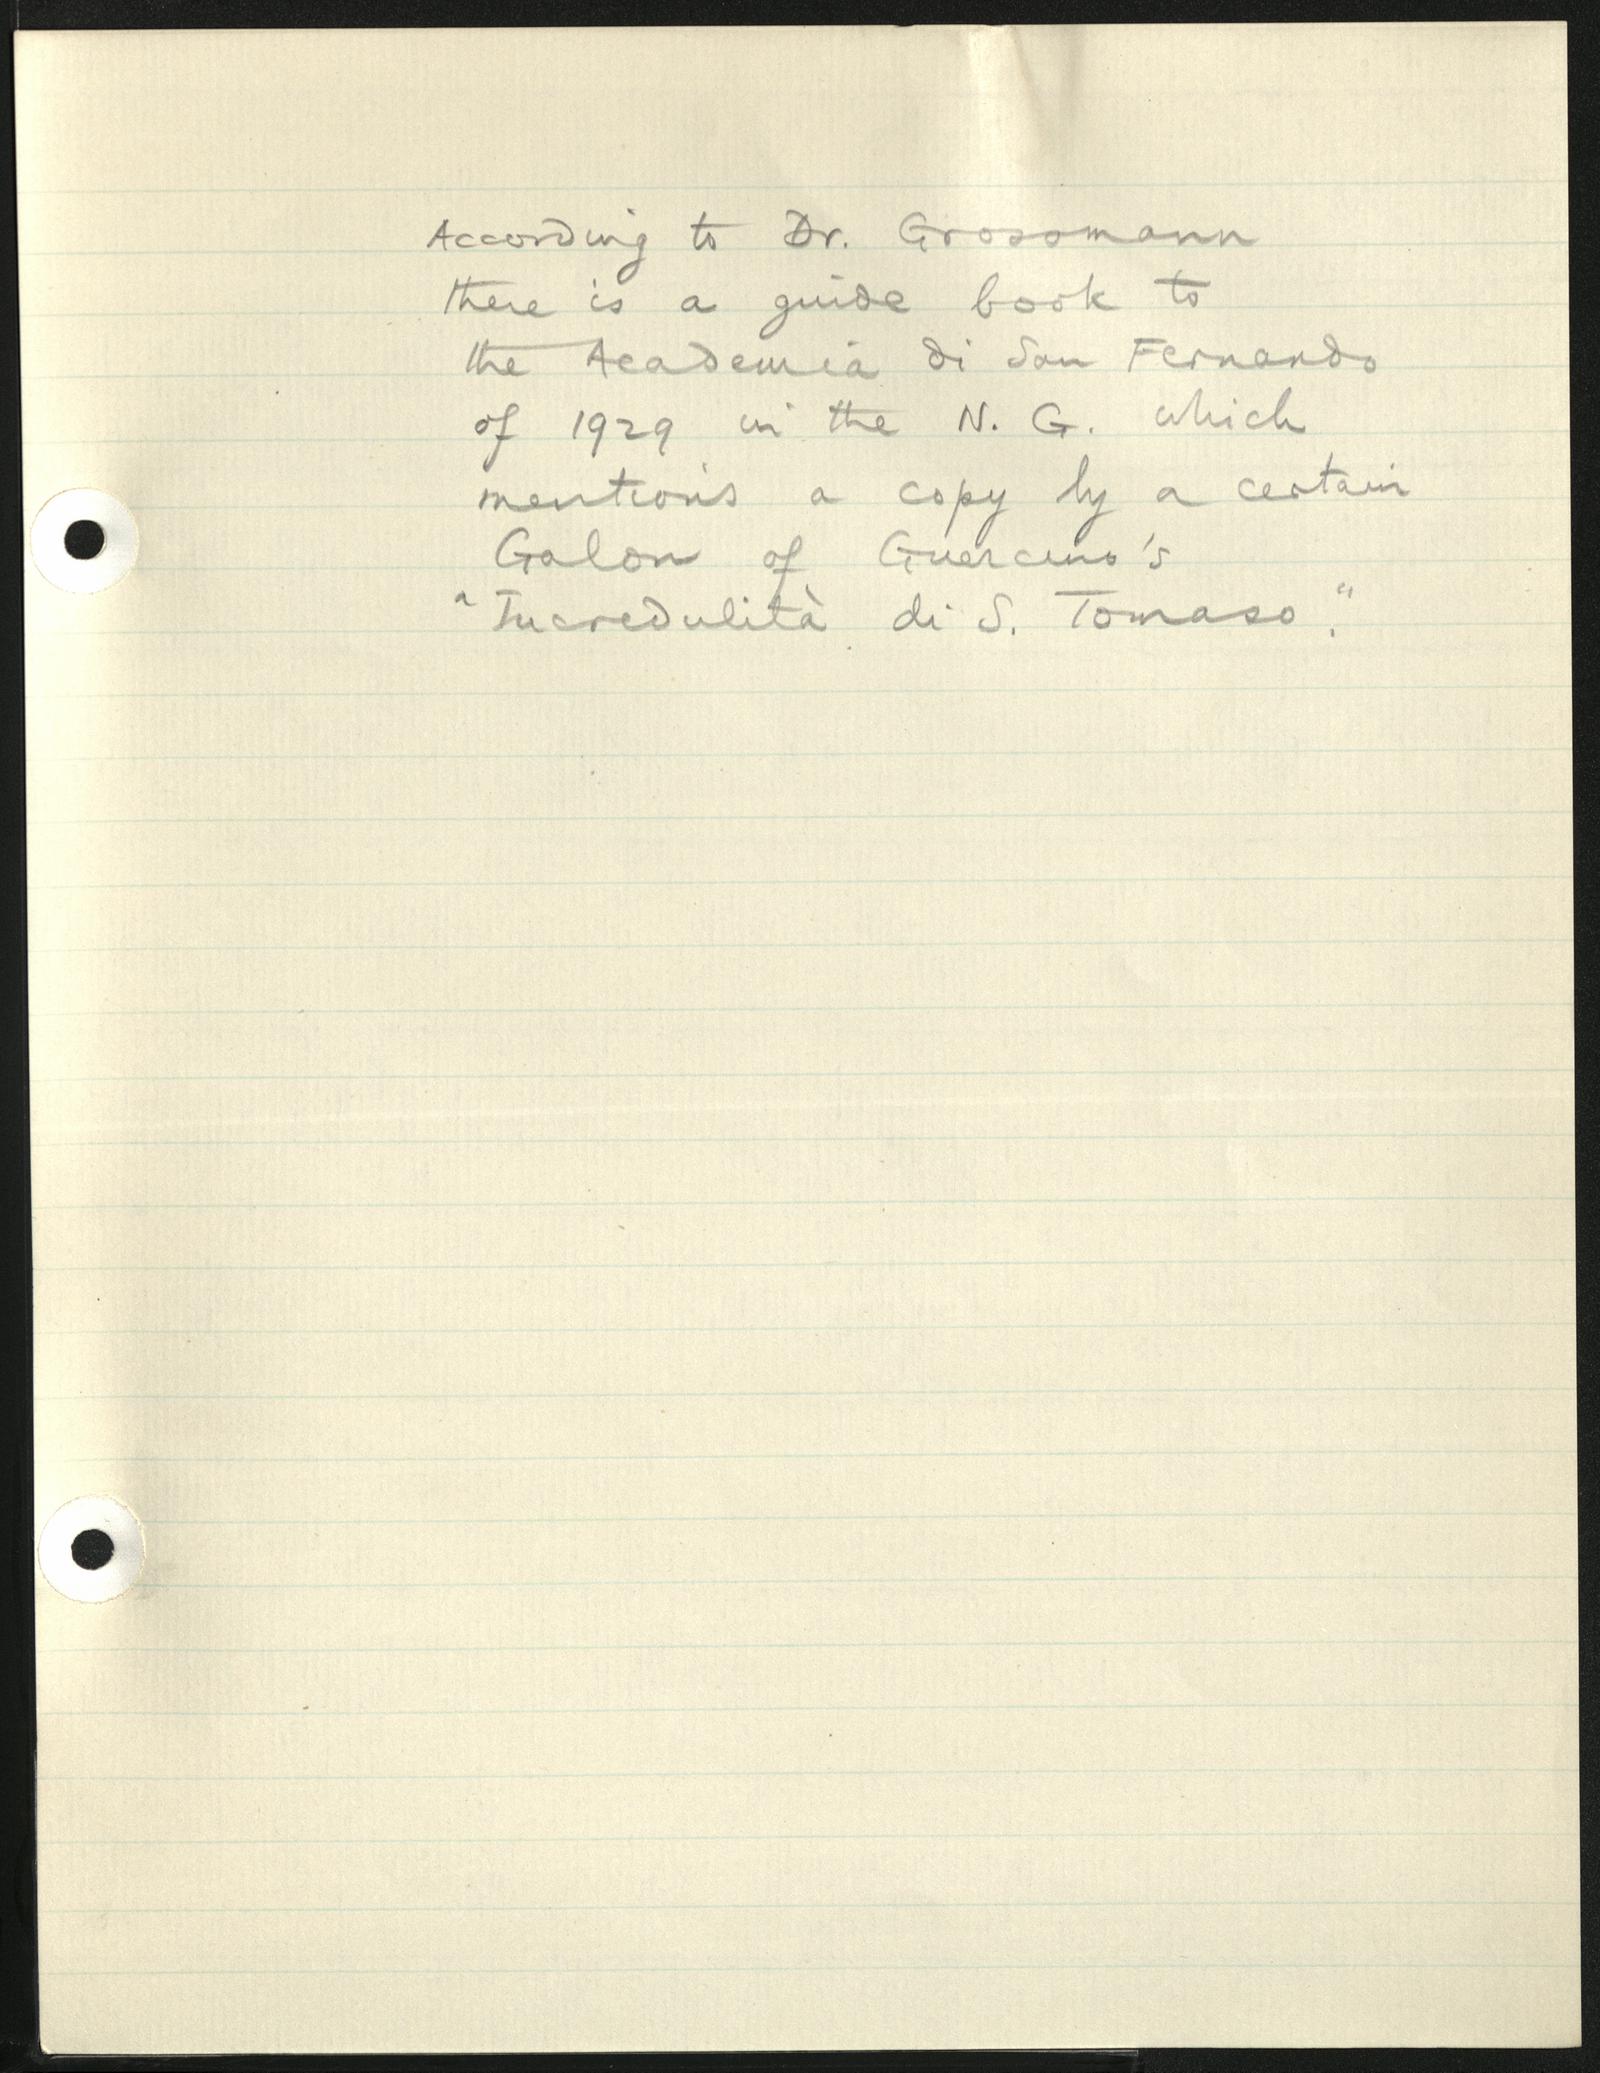 According to Dr. Grossmann
there is a guide book to
the Academia di San Fernando
of 1929 in the N. G. which
mentions a copy by a certain
Galon of Guercino's
"Incredulità di S. Tomaso."